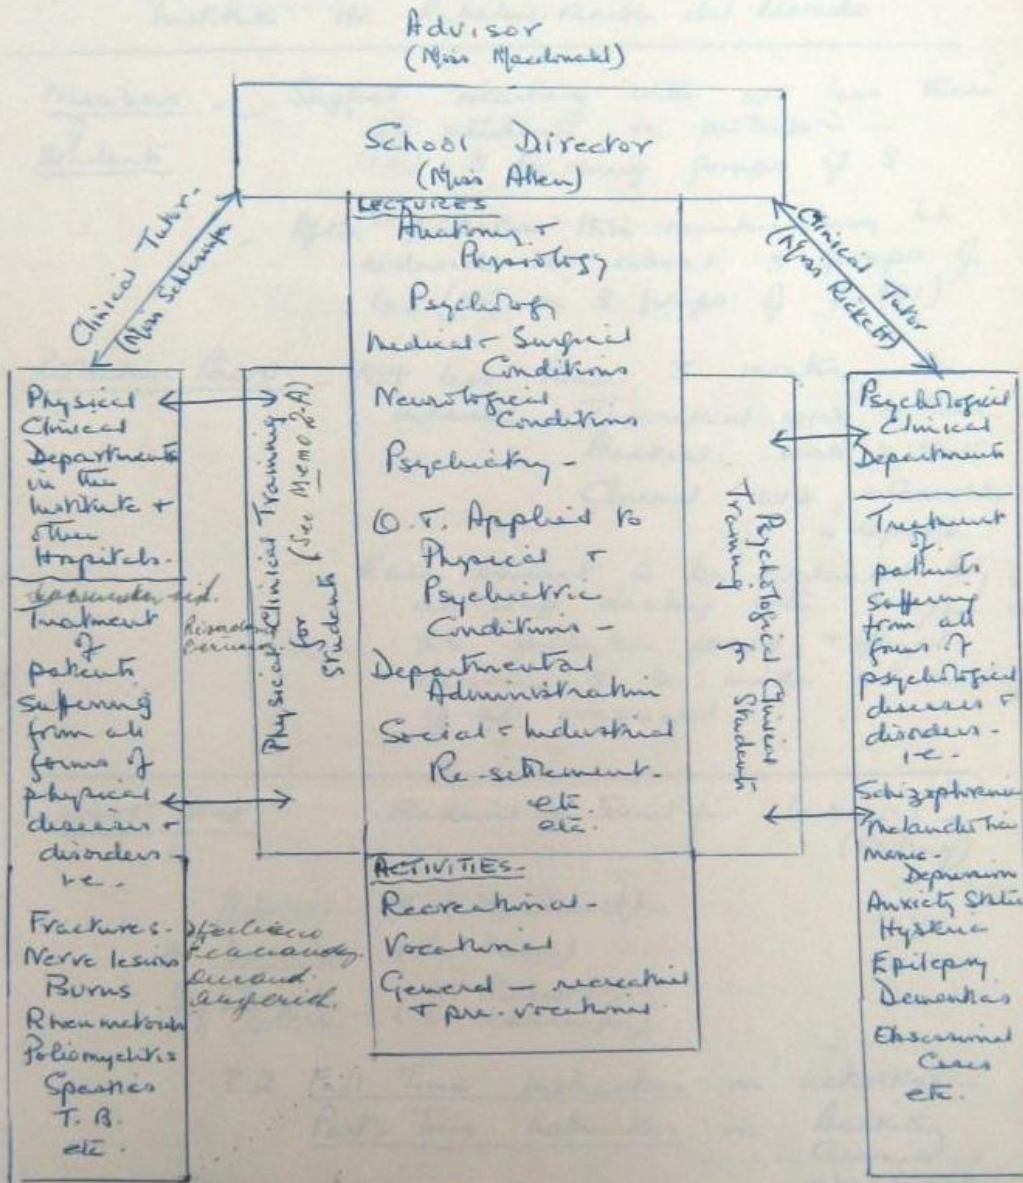 Advisor
(Miss Macdonald)
School Director
(Miss Allen)
Clinical Tutor-
(Miss
Clinical Tutor
(Miss Rickett)
LECTURES
Anatomy +
Physiology
Psychology
Medical + Surgical
Conditions
Neurological
Conditions
Psychiatry -
O.T. Applied to
Physical +
Psychiatric
Conditions -
Departmental
Administration
Social + Industrial
Re-settlement-
etc
etc.
ACTIVITIES-
Recreational-
Vocational
General - recreational
+ pre-vocational
Physical Clinical Training
for
Students
(See Memo 2-A)
Psychological Clinical
Training for Students
Physical
Clinical
Departments
in the
Institute +
other
Hospitals-
Treatment
of
patients
suffering
from all
forms of
physical
diseases +
disorders -
i-e.
Fractures-
Nerve lesions
Burns
Rheumatoids
Poliomyelitis
Spastics
T.B.
etc
Psychological
Clinical
Departments
Treatment
of
patients
suffering
from all
forms of
psychological
diseases +
disorders-
i-e.
Schizophrenia
Melancholia
Manic-
Depression
Anxiety States
Hysteria
Epilepsy
Dementias
Obsessional
Cases
etc.